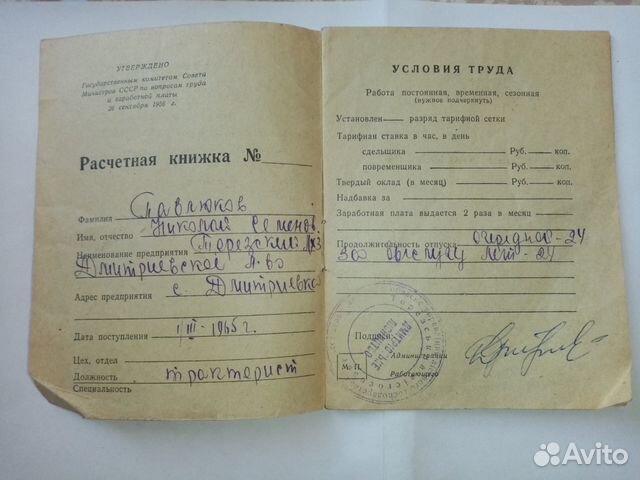 УТВЕРЖДЕНО
Государственным комитетом Совета
Министров СССР по вопросам труда
и заработной платы
26 сентября 1956 г.
Расчетная книжка №
Фамилия Павлюков
Имя, отчество Николай Семенов.
Наименование предприятия
Дмитриевское л-во
Адрес предприятия с. Дмитриевка
Дата поступления 1/III - 1965 г.
Цех, отдел
Должность тракторист
Специальность
УСЛОВИЯ ТРУДА
Работа постоянная, временная, сезонная
(нужное подчеркнуть)
Установлен разряд тарифной сетки
Тарифная ставка в час, в день
сдельщика Руб. коп.
повременщика Руб. коп.
Твердый оклад (в месяц) Руб. коп.
Надбавка за
Заработная плата выдается 2 раза в месяц
Продолжительность отпуска очередной - 24
за выслугу лет - 24
Подписи:
Администрации
М. П.
Работающего
Avito